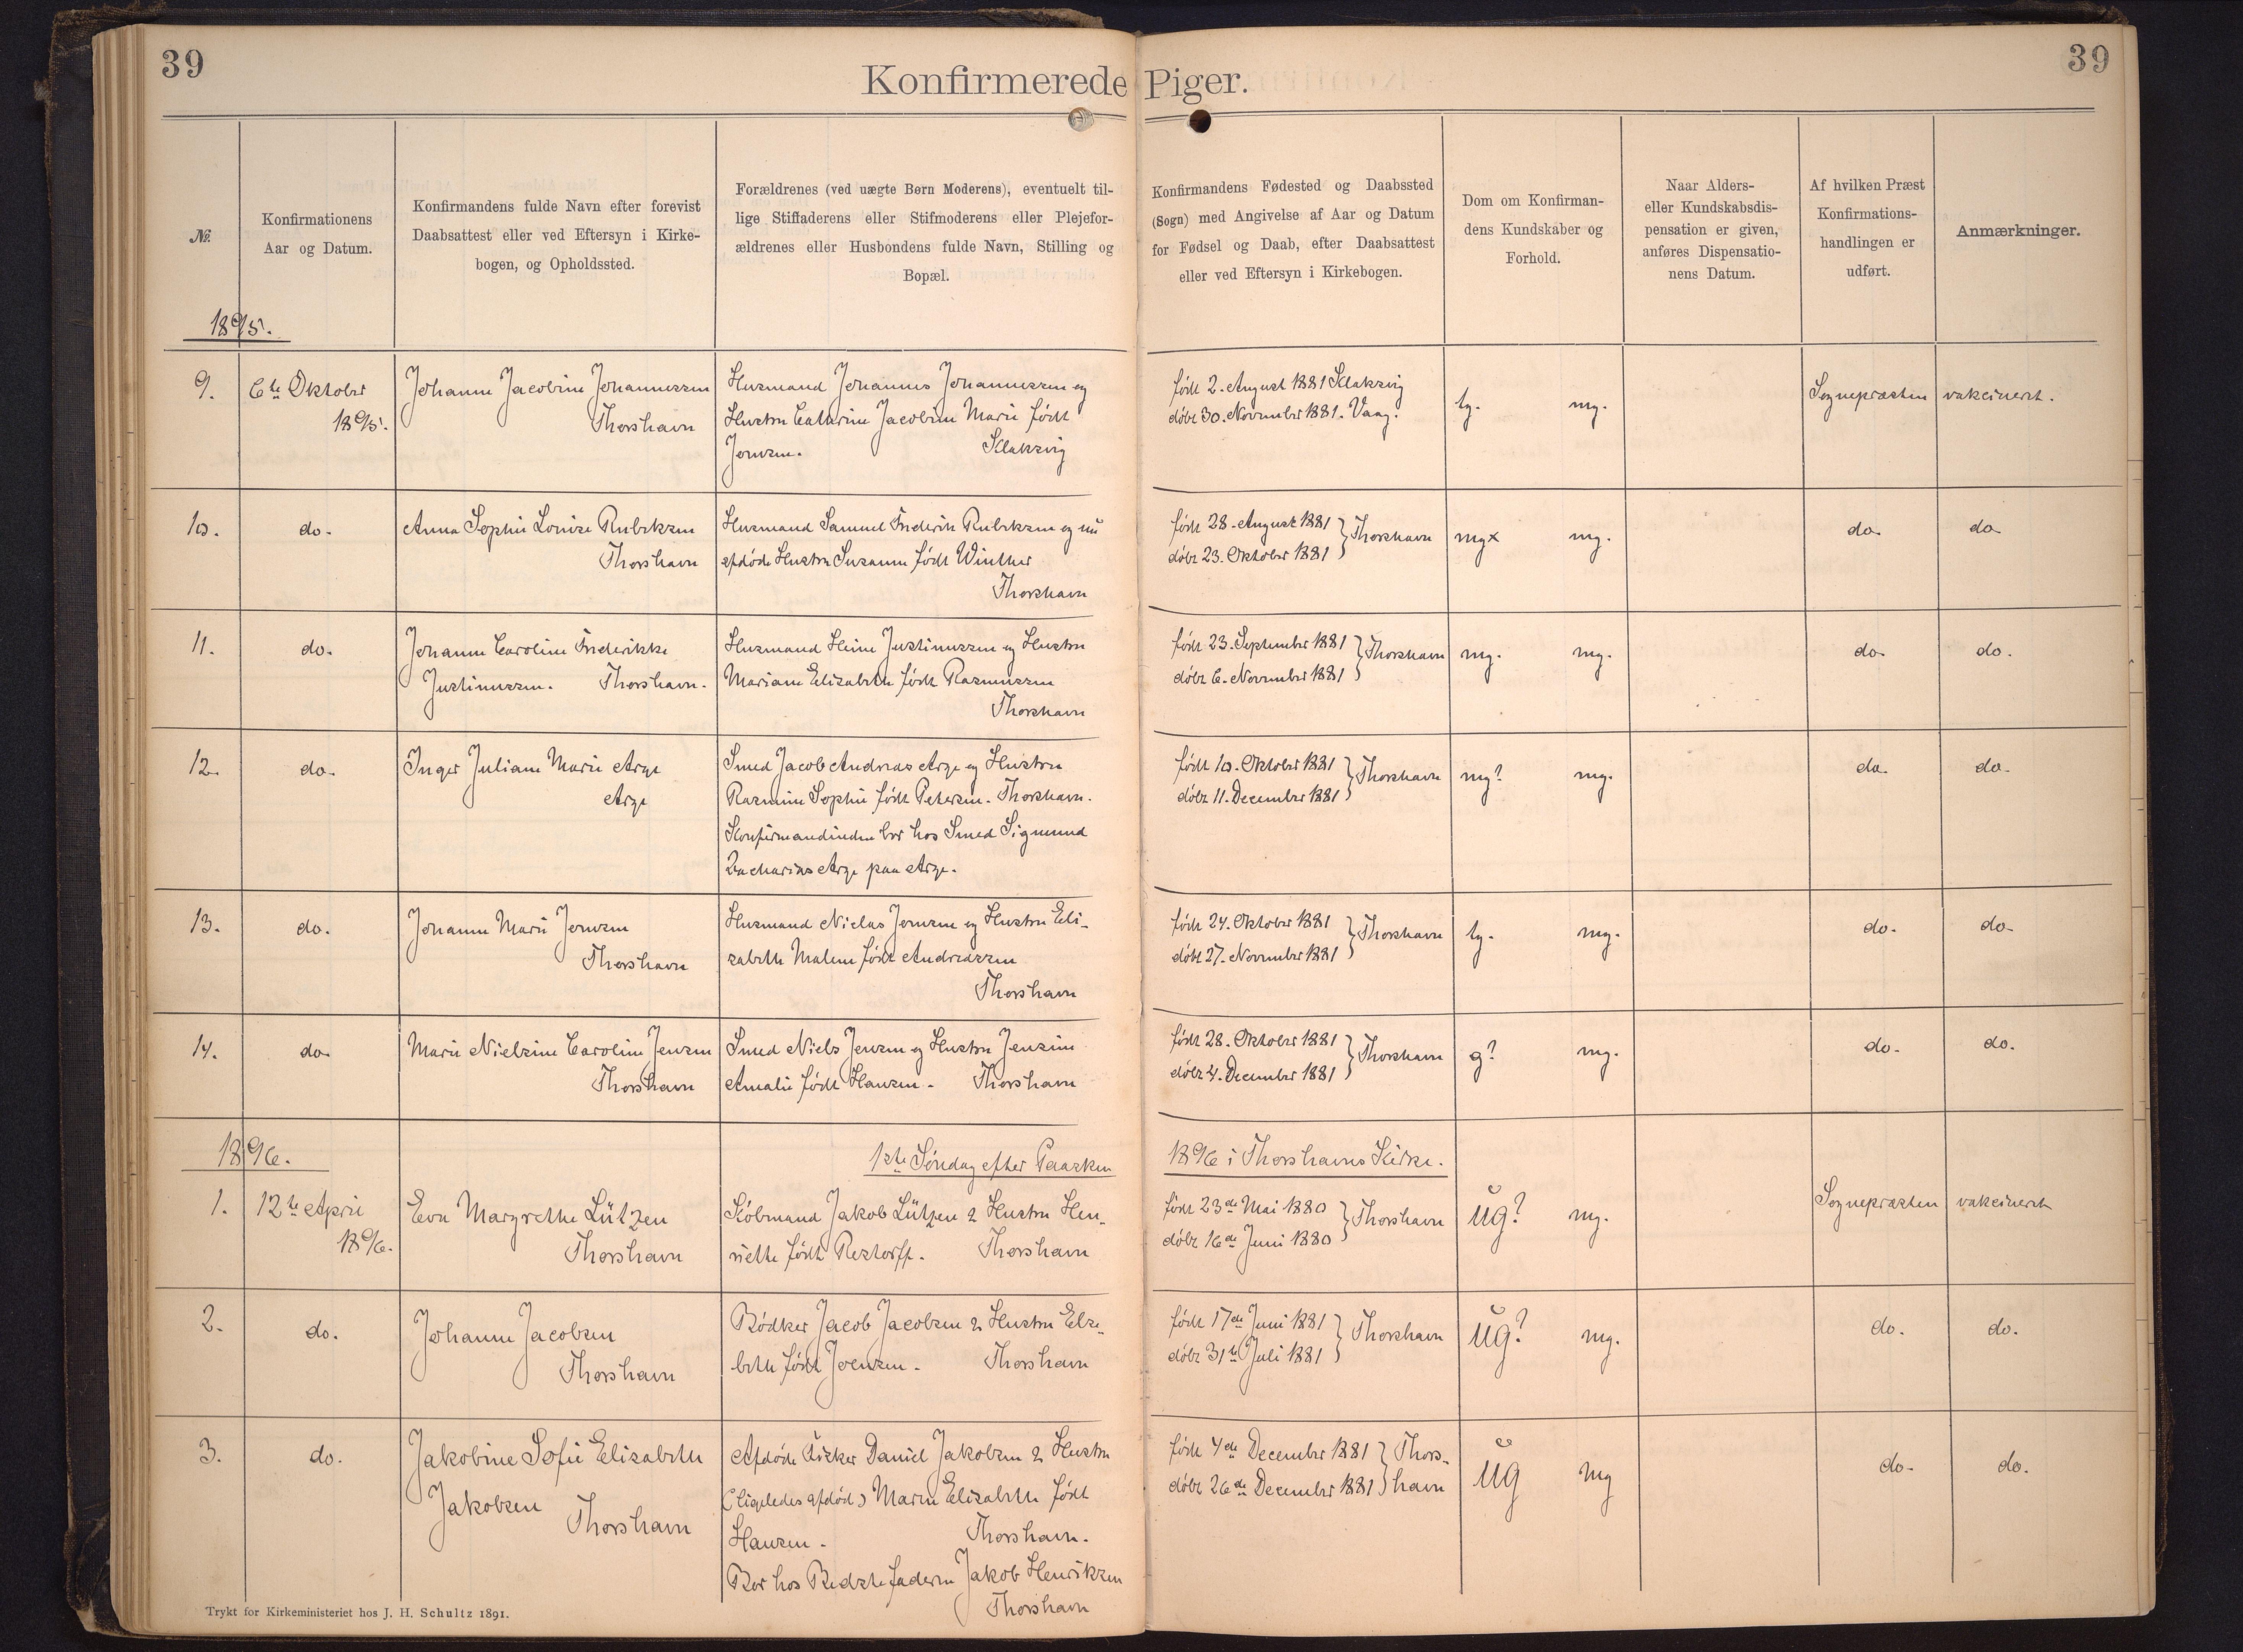 39
39
Konfirmerede Piger.
№
Konfirmationens
Aar og Datum.
Konfirmandens fulde Navn efter forevist
Daabsattest eller ved Eftersyn i Kirke-
bogen, og Opholdssted.
Forældrenes (ved uægte Børn Moderens), eventuelt til-
lige Stiffaderens eller Stifmoderens eller Plejefor-
ældrenes eller Husbondens fulde Navn, Stilling og
Bopæl.
Konfirmandens Fødested og Daabssted
(Sogn) med Angivelse af Aar og Datum
for Fødsel og Daab, efter Daabsattest
eller ved Eftersyn i Kirkebogen.
Dom om Konfirman-
dens Kundskaber og
Forhold.
Naar Alders-
eller Kundskabsdis-
pensation er given,
anføres Dispensatio-
nens Datum.
Af hvilken Præst
Konfirmations-
handlingen er
udført.
Anmærkninger.
1895.
9.
6te Oktober
1895.
Johanne Jacobine Johannessen
Thorshavn
Husmand Johannes Johannessen og
Hustru Cathrine Jacobine Marie født
Joensen.
Klaksvig
født 2. August 1881 Klaksvig
døbt 30. November 1881. Vaag.
tg.
mg.
Sognepræsten
vakcineret.
10.
do.
Anna Sophie Louise Rubeksen
Thorshavn
Husmand Samuel Frederik Rubeksen og nu
afdøde Hustru Susanne født Winther
Thorshavn
født 28. August 1881
døbt 23. Oktober 1881
Thorshavn
mgx
mg.
do.
do.
11.
do.
Johanne Caroline Frederikke
Justinussen. Thorshavn.
Husmand Heine Justinussen og Hustru
Mariane Elisabeth født Rasmussen
Thorshavn
født 23. September 1881
døbt 6. November 1881
Thorshavn
mg.
mg.
do.
do.
12.
do.
Inger Juliane Marie Arge
Arge
Smed Jacob Andreas Arge og Hustru
Rasmine Sophie født Petersen. Thorshavn.
Konfirmandinden bor hos Smed Sigmund
Zacharias Arge paa Arge.
født 10. Oktober 1881
døbt 11. December 1881
Thorshavn
mg?
mg.
do.
do.
13.
do.
Johanne Marie Joensen
Thorshavn
Husmand Niclas Joensen og Hustru Eli-
sabeth Malene født Andreassen
Thorshavn
født 24. Oktober 1881
døbt 27. November 1881
Thorshavn
tg.
mg.
do.
do.
14.
do.
Marie Nielsine Caroline Jensen
Thorshavn
Smed Niels Jensen og Hustru Jensine
Amalie født Hansen. Thorshavn
født 28. Oktober 1881
døbt 4. December 1881
Thorshavn
g?
mg.
do.
do.
1896.
1ste Søndag efter Paasken
1896 i Thorshavns Kirke.
1.
12te April
1896.
Eva Margrethe Lützen
Thorshavn
Købmand Jakob Lützen & Hustru Hen-
riette født Restorff. Thorshavn
født 23de Mai 1880
døbt 16de Juni 1880
Thorshavn
ug?
mg.
Sognepræsten
vakcineret
2.
do.
Johanne Jacobsen
Thorshavn
Bødker Jacob Jacobsen & Hustru Else-
beth født Joensen. Thorshavn
født 17de Juni 1881
døbt 31te Juli 1881
Thorshavn
ug?
mg.
do.
do.
3.
do.
Jakobine Sofie Elisabeth
Jakobsen
Thorshavn
Afdøde Fisker Daniel Jakobsen & Hustru
(ligeledes afdød) Maren Elisabeth født
Hansen. Thorshavn.
Bor hos Bedstefaderen Jakob Henriksen
Thorshavn
født 4de December 1881
døbt 26de December 1881
Thors-
havn
ug
mg
do.
do.
Trykt for Kirkeministeriet hos J. H. Schultz 1891.